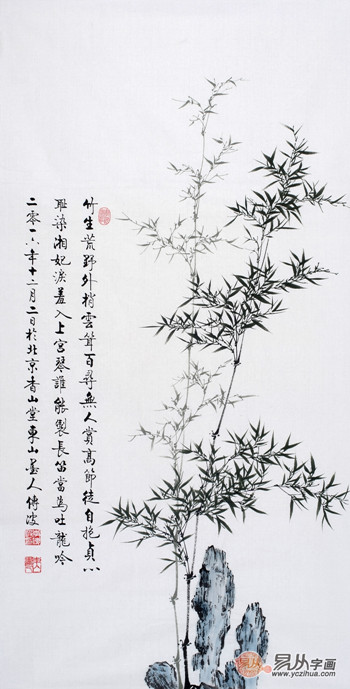 竹生荒野外梢雲聳百尋無人賞高節徒自抱貞心
耻染湘妃淚羞入上宮琴誰能製長笛當為吐龍吟
二零一八年十二月二日於北京香山堂東山墨人傅波
易从字画
www.yczihua.com